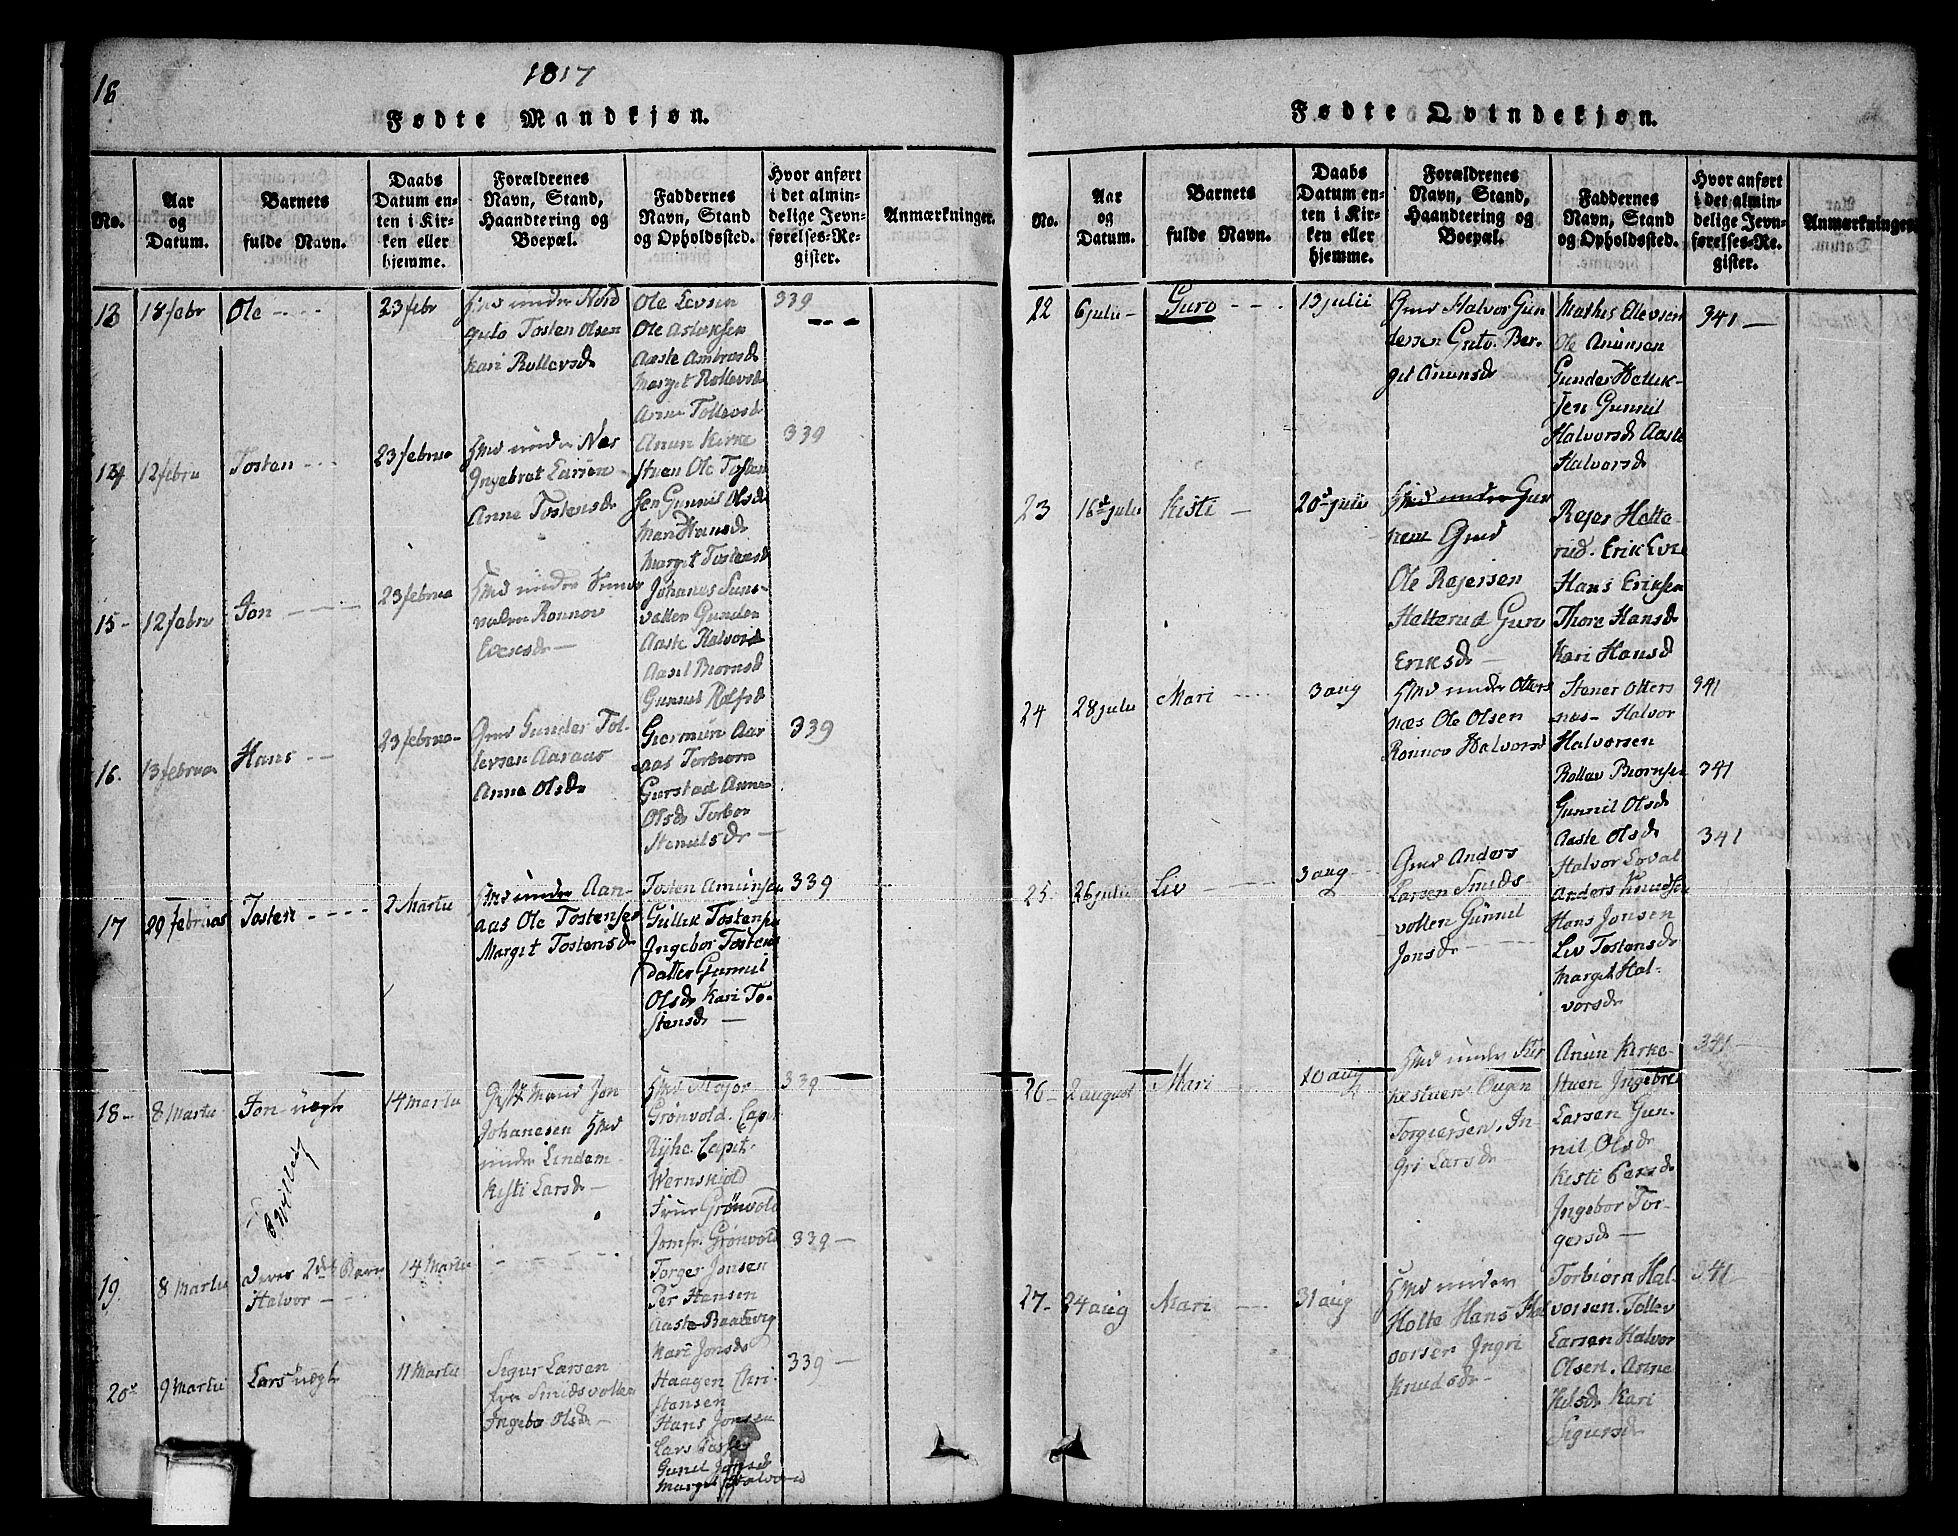 16
1817
Fødte Mandkjøn.
No.
Aar
og
Datum.
Barnets
fulde Navn.
Daabs
Datum en-
ten i Kir-
ken eller
hjemme.
Forældrenes
Navn, Stand,
Haandtering og
Boepæl.
Faddernes
Navn, Stand
og Opholdssted.
Hvor anført
i det almin-
delige Jevn-
førelses-Re-
gister.
Anmærkninger.
13 18 febr Ole 23 febr
Hmd under Nord
gulo Tosten Olsen
Kari Rollevsd
Ole Levsen
Ole Aslaksen
Aaste Ambrosd
Marget Rollevsd
Anne Tollevsd
339
14 12 febru Tosten 23 februa
Hmd under Næs
Ingebret Larsen
Anne Tostensd
Anun Kirke
stuen Ole Tosten
sen Gunnil Olsd
Mari Hansd
Marget Tostensd
339
15 12 febru Jon 23 februa
Hmd under
Ronnov
Johanes Suns-
vatten Gunder
Aaste Halvorsd
Aasil Biornsd
Gunnil Rolfsd
16. 13 februa Hans 23 februa
Gmd Gunder Tol-
levsen Aaraas
Anne Olsd
Giermun Aar
aas Torbiorn
Gurstad Anne
Olsd Torbor
Stenulsd
339
17 29 februas Tosten 2 Martii
Hmd under Aan-
aas Ole Tostensen
Marget Tostensd
Tosten Amunsen
Gullik Tostensen
Ingebor Tostens
datter Gunnil
Olsd Kari To-
stensd
339
18 8 Martii Jon uægte 14 Martii
Tvilling
Gift Mand Jon
Johanesen Hmd
under Lindem
Kisti Larsd
Hmd Major
Grönvold. Capt
Ryhe Capit-
Wernskiold
Frue Grönvold
Jomfr. Grönvold
339
19. 8 Martii deres 2det Barn
Halvor
14 Martii
Torger Jonsen
Per Hansen
Aaste Baatevig
Kari Jonsd
339
20 9 Martii Lars uægte 11 Martii
Sigur Larsen
fra Smidsvollen
Ingebor Olsd
Haagen Chri-
stensen
Hans Jonsen
Lars
Gunil Jonsd
Marget Halvorsd
339
Fødte Qvindekjøn.
No.
Aar
og
Datum.
Barnets
fulde Navn.
Daabs
Datum en-
ten i Kir-
ken eller
hjemme.
Forældrenes
Navn, Stand,
Haandtering og
Boepæl.
Faddernes
Navn, Stand
og Opholdssted.
Hvor anført
i det almin-
delige Jevn-
førelses-Re-
gister.
Anmærkninger.
22 6 julii Guro 13 julii
Gmd Halvor Gun
dersen Guto. Ber-
git Anunsd
Mathis Ellevsen
Ole Anunsen
Gunder Hellik-
sen Gunnil
Halvorsd Aaste
Halvorsd
341
23 16 julii Kisti 20 julii
Hmd under Gur
Gmd
Ole Rejersen
Halterud Guro
Eriksd
Rejer Holte-
rud. Erik
Hans Eriksen
Thore Hansd
Kari Hansd
24 28 julii Mari 3 aug
Hmd under Otters
næs Ole Olsen
Ronnov Halvorsd
Stener Otters
næs- Halvor
Halvorsen
Rollev Biornsen
Gunnil Olsd
Aaste Olsd
341
341
341
25. 26 julii Liv 3 aug
Gmd Anders
Larsen Smids
vollen Gunnil
Jonsd
Halvor
Anders Knudsen
Hans Jonsen
Liv Tostensd
Marget Hal-
vorsd
26 2 august Mari 10 aug
Hmd under Kir
kestuen Ougen
Torgiersen. In-
gri Larsd
Anun Kirke-
stuen Ingebre
Larsen Gun-
nil Olsd
Kisti Persd
Ingebor Tor-
gersd
341
27 24 aug Mari 31 aug
Hmd under
Holte Hans Hal
vorsen Ingri
Knudsd
Torbiørn Hal-
vorsen. Tollev
Larsen Halvor
Olsen. Anne
Kari
Sigursd
341